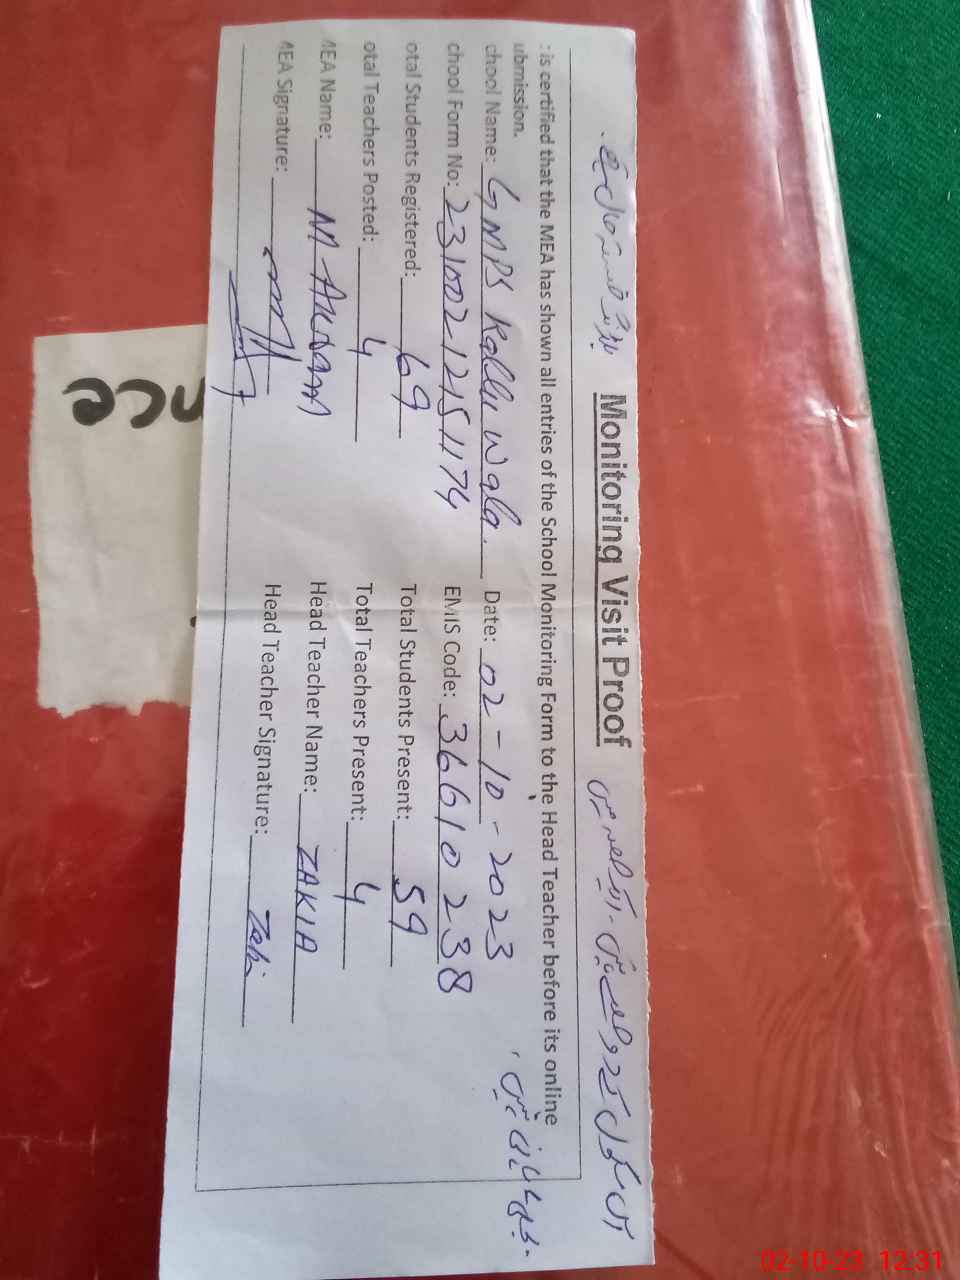 Monitoring Visit Proof
: is certified that the MEA has shown all entries of the School Monitoring Form to the Head Teacher before its online
ubmission.
chool Name: GMPS Rallu Wala. Date: 02-10-2023
chool Form No: 231002121511174 EMIS Code: 36610238
otal Students Registered: 69 Total Students Present: 59
otal Teachers Posted: 4 Total Teachers Present: 4
MEA Name: M AKRAM Head Teacher Name: ZAKIA
MEA Signature: Head Teacher Signature: Zaki
nce
02-10-23 12:31